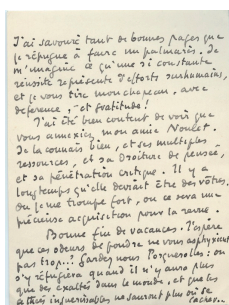 J'ai savouré tant de bonnes pages que
je répugne à faire un palmarès. Je
m'imagine ce qu'une si constante
réussite représente d'efforts surhumains,
et je vous tire mon chapeau, avec
déférence, et gratitude !
J'ai été bien content de voir que
vous annexiez mon amie Noulet.
Je la connais bien, et ses multiples
ressources, et sa droiture de pensée,
et sa pénétration critique. Il y a
longtemps qu'elle devrait être des vôtres.
Ou je me trompe fort, ou ce sera une
précieuse acquisition pour la revue.
Bonne fin de vacances. J'espère
que ces odeurs de poudre ne vous asphyxient
pas trop... Gardez-nous Porquerolles : on
s'y réfugiera quand il n'y aura plus
que des exaltés dans le monde, et que les
inguérissables ne sauront plus où se
cacher.